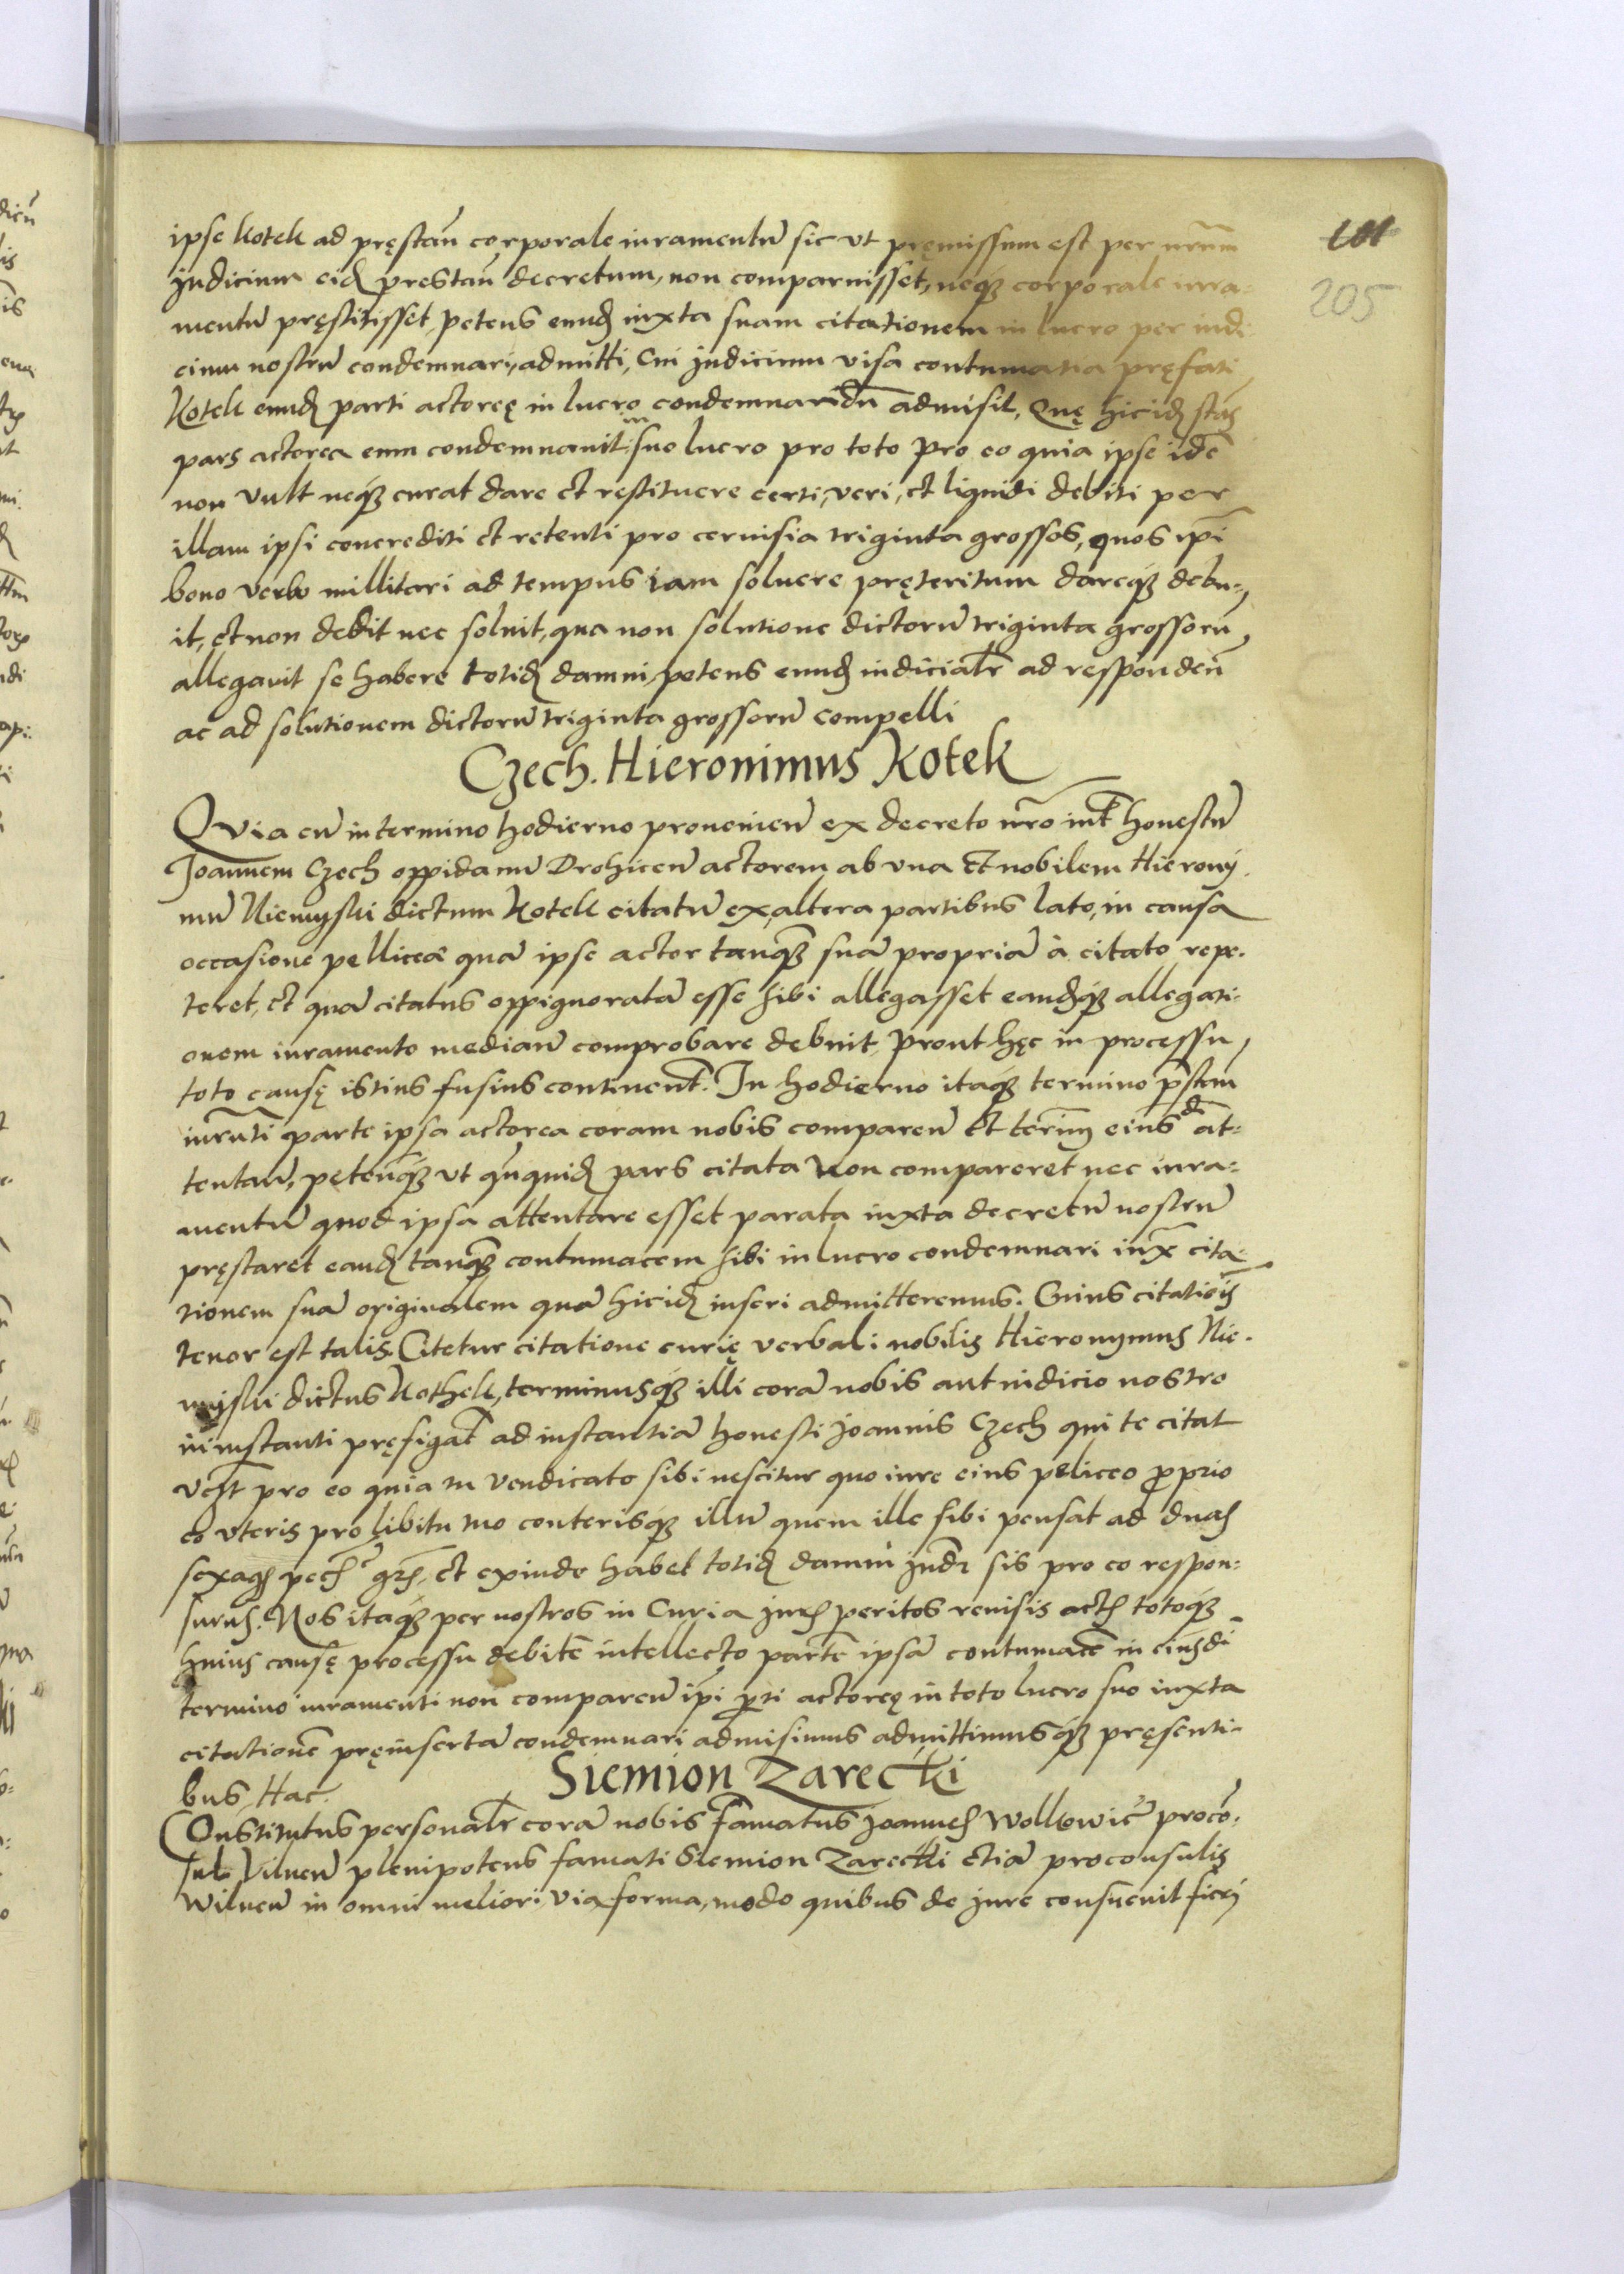 ipse Kotek ad pręstañ corporale iuramentũ sic vt pręmissum est per nrũm
Judicium eid prestañ decretum, non comparuisset, neqʒ corporale iura-
mentũ pręstitisset, petens eund iuxta suam citationem in lucro per iudi
cium nostrũ condemnari, admitti, Cui Judicium visa contumatia pręfati
Kotek eund parti actoreę in lucro condemnandũ admisit, Quę hicid stañs
pars actorea eum condemnauit in suo lucro pro toto pro eo quia ipse idẽ
non vult neqʒ curat dare et restituere certi, veri, et liquidi debiti per
illam ipsi concrediti et retenti pro ceruisia triginta grossos, quos ipi
bono verbo millitari ad tempus iam soluere pręteritum dareqʒ debu-
it, et non dedit nec soluit, qua non solutione dictorũ triginta grossorũ
allegauit se habere totid damni, petens eund iudicialr ad responden̄
ac ad solutionem dictorũ triginta grossorũ compelli
Czech. Hieronimus Kotek
Quia cũ in termino hodierno proueniẽn ex decreto nr̃o int̃ honestũ
Joannem Czech oppidanũ Drohicen̄ actorem ab vna et nobilem Hierony
mũ Niemyski dictum Kotek citatũ ex altera partibus lato, in causa
occasione pelliceæ quã ipse actor tanqʒ suã propriã à citato repe-
teret, et quã citatus oppignoratã esse sibi allegasset eandqʒ allegati-
onem iuramento median̄ comprobare debuit, prout hęc in processu
toto causę istius fusius continent̃. In hodierno itaqʒ termino pr̃stam
iur̃nti parte ipsa actorea coram nobis comparen̄ et ter̃m eius d at-
tentañ, peten̄qʒ vt qñquid pars citata non compareret nec iura-
mentũ quod ipsa attentare esset parata iuxta decretũ nostrũ
pręstaret eand tanqʒ contumacem sibi in lucro condemnari iux̃ cita-
tionem suã originalem quã hicid inseri admitteremus. Cuius citatiõis
tenor est talis. Citetur citatione curię verbali nobilis Hieronymus Nie-
myski dictus Kothek, terminusqʒ illi corã nobis aut iudicio nostro
in instanti pręfigat̃ ad instantiã honesti Joannis Czech qui te citat
pro eo quia tu vendicato sibi nescitur quo iure eius peliceo proprio
eo vteris pro libitu tuo conterisqʒ illũ quem ille sibi pensat ad duas
sexag̃s pec̃ gr̃s, et exinde habet totid damni Jnd̃ sis pro eo respon-
surus. Nos itaqʒ per nostros in Curia Juris peritos reuisis actis totoqʒ
huius causę processu debitẽ intellecto partẽ ipsã contumacẽ in eiusdi
termino iuramenti non comparen̄ ipi pr̃ti actoreę in toto lucro suo iuxta
citationẽ pręinsertã condemnari admisimus admittimusqʒ pręsenti-
bus, Hac.
Siemion Zarecki
Constitutus personalr corã nobis famatus Joannes Wolkowic̃ procõ-
sul Vilnen̄ plenipotens famati Siemion Zarecki etiã proconsulis
Wilnen̄ in omni meliori, via, forma, modo quibus de Jure consueuit fieri
205